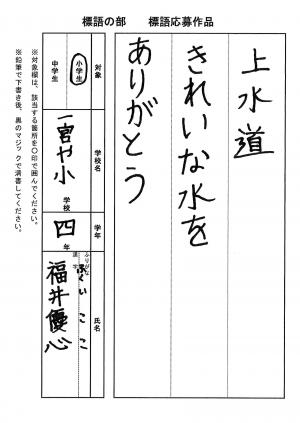 標語の部　標語応募作品
上水道
きれいな水を
ありがとう
対象
小学生
中学生
学校名
一宮や小
学校
学年
四
年
氏名
ふりがな
ふくい ここ
漢字
福井優心
※対象欄は、該当する箇所を〇印で囲んでください。
※鉛筆で下書き後、黒のマジックで清書してください。